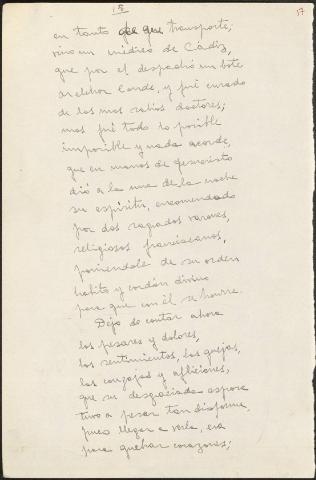 15
17
en tanto que transporte;
vino un médico de Cádiz,
que por él despachó un bote
el Conde, y fué curado
de los mas sabios doctores;
mas fué todo lo posible
imposible y nada acorde,
que en manos de
dió a la una de la noche
su espíritu, encomendado
por dos sagrados varones,
religiosos franciscanos,
poniendole de su orden
habito y cordón divino
para que con él se honre.
Dejo de contar ahora
los pesares y dolores,
los sentimientos, las quejas,
las congojas y afliciones,
que su desgraciada esposa
tuvo a pesar tan disforme,
pues llegar a verla, era
para quebrar corazones;